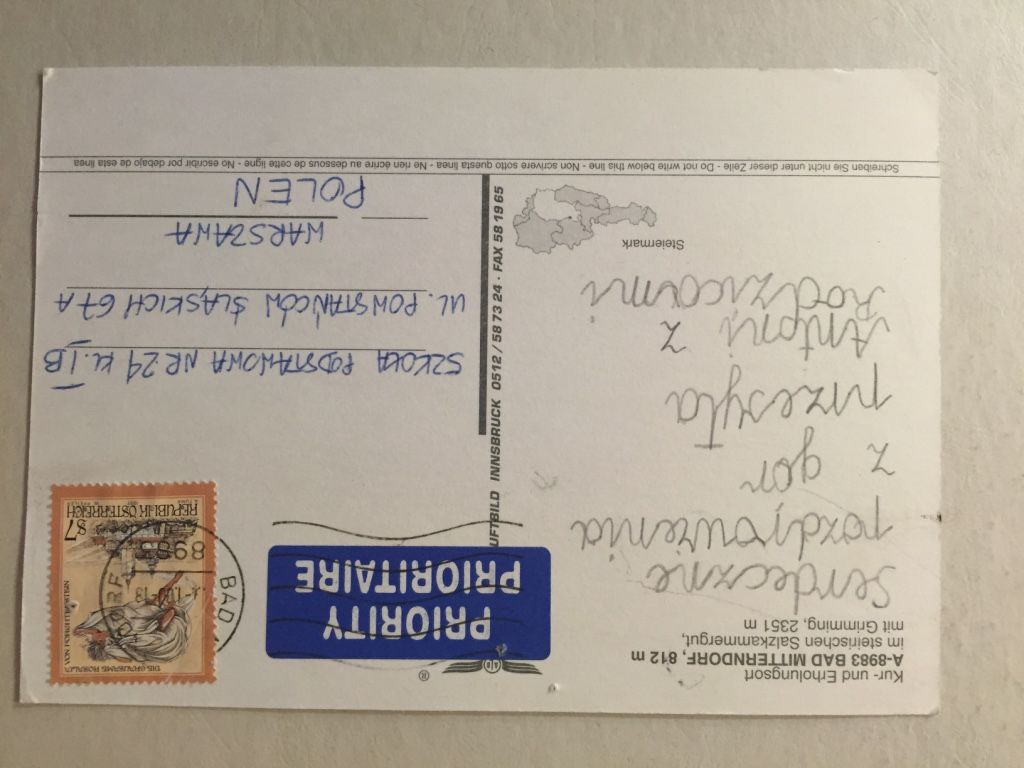 Kur- und Erholungsort
A-8983 BAD MITTERNDORF, 812 m
im steirischen Salzkammergut,
mit Grimming, 2351 m
Serdeczne
pozdrowienia
z gór
przesyła
Antoni z
Rodzicami
Steiermark
UFTBILD INNSBRUCK 0512 / 58 73 24 · FAX 58 19 65
®
PRIORITY
PRIORITAIRE
S7
REPUBLIK ÖSTERREICH
BAD
8983
SZKOŁA PODSTAWOWA NR 24 KL. IB
UL. POWSTAŃCÓW ŚLĄSKICH 67A
WARSZAWA
POLEN
Schreiben Sie nicht unter dieser Zeile - Do not write below this line - Non scrivere sotto questa linea - Ne rien écrire au dessous de cette ligne - No escribir por debajo de esta linea